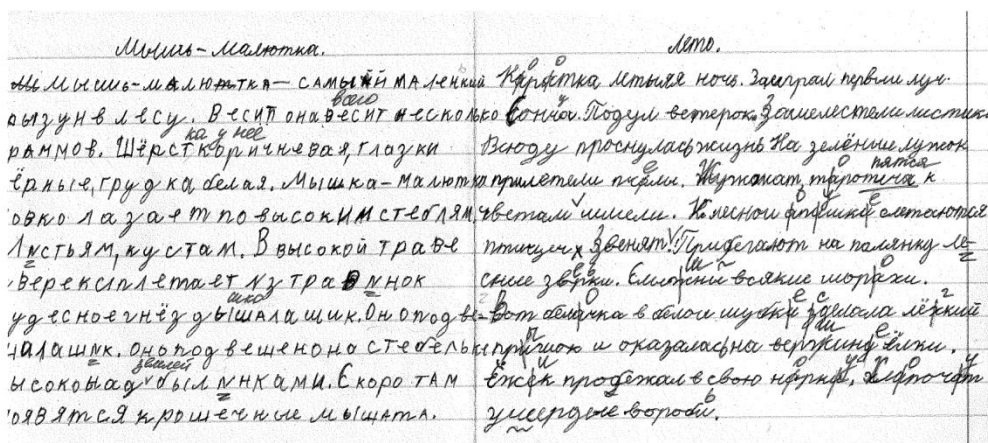 Мышь-малютка.
Мышь-малютка — самый маленкий
рызун в лесу. Весит она весит несколько
всего
раммов. Шёрстка у неё коричневая, глазки
ёрные, грудка белая. Мышка-малютка
овко лазает по высоким стеблям,
листьям, кустам. В высокой траве
зверексплетает из травинок
удесное гнёздышко шалашик. Оно подве-
шалашик. оно подвешено на стебельк
ысоко над землей былинками. Скоро там
оявятся крошечные мышата.
Лето.
летняя ночь. Заиграл первыи луч
Подул ветерок. Зашелестели листики
Всюду проснулась жизнь На зелёныи лужок
прилетели пчелы. Жужжат, торопятся к
цветам шмели. К лесной слетаются
птицы Звенят! Прибегают на полянку ле-
сные зверки. всякие
Вот белочка в белои шубке сделала лёгкий
прыжок и оказалась на вершине ёлки.
Ёжик пробежал в свою норку.
воробы.